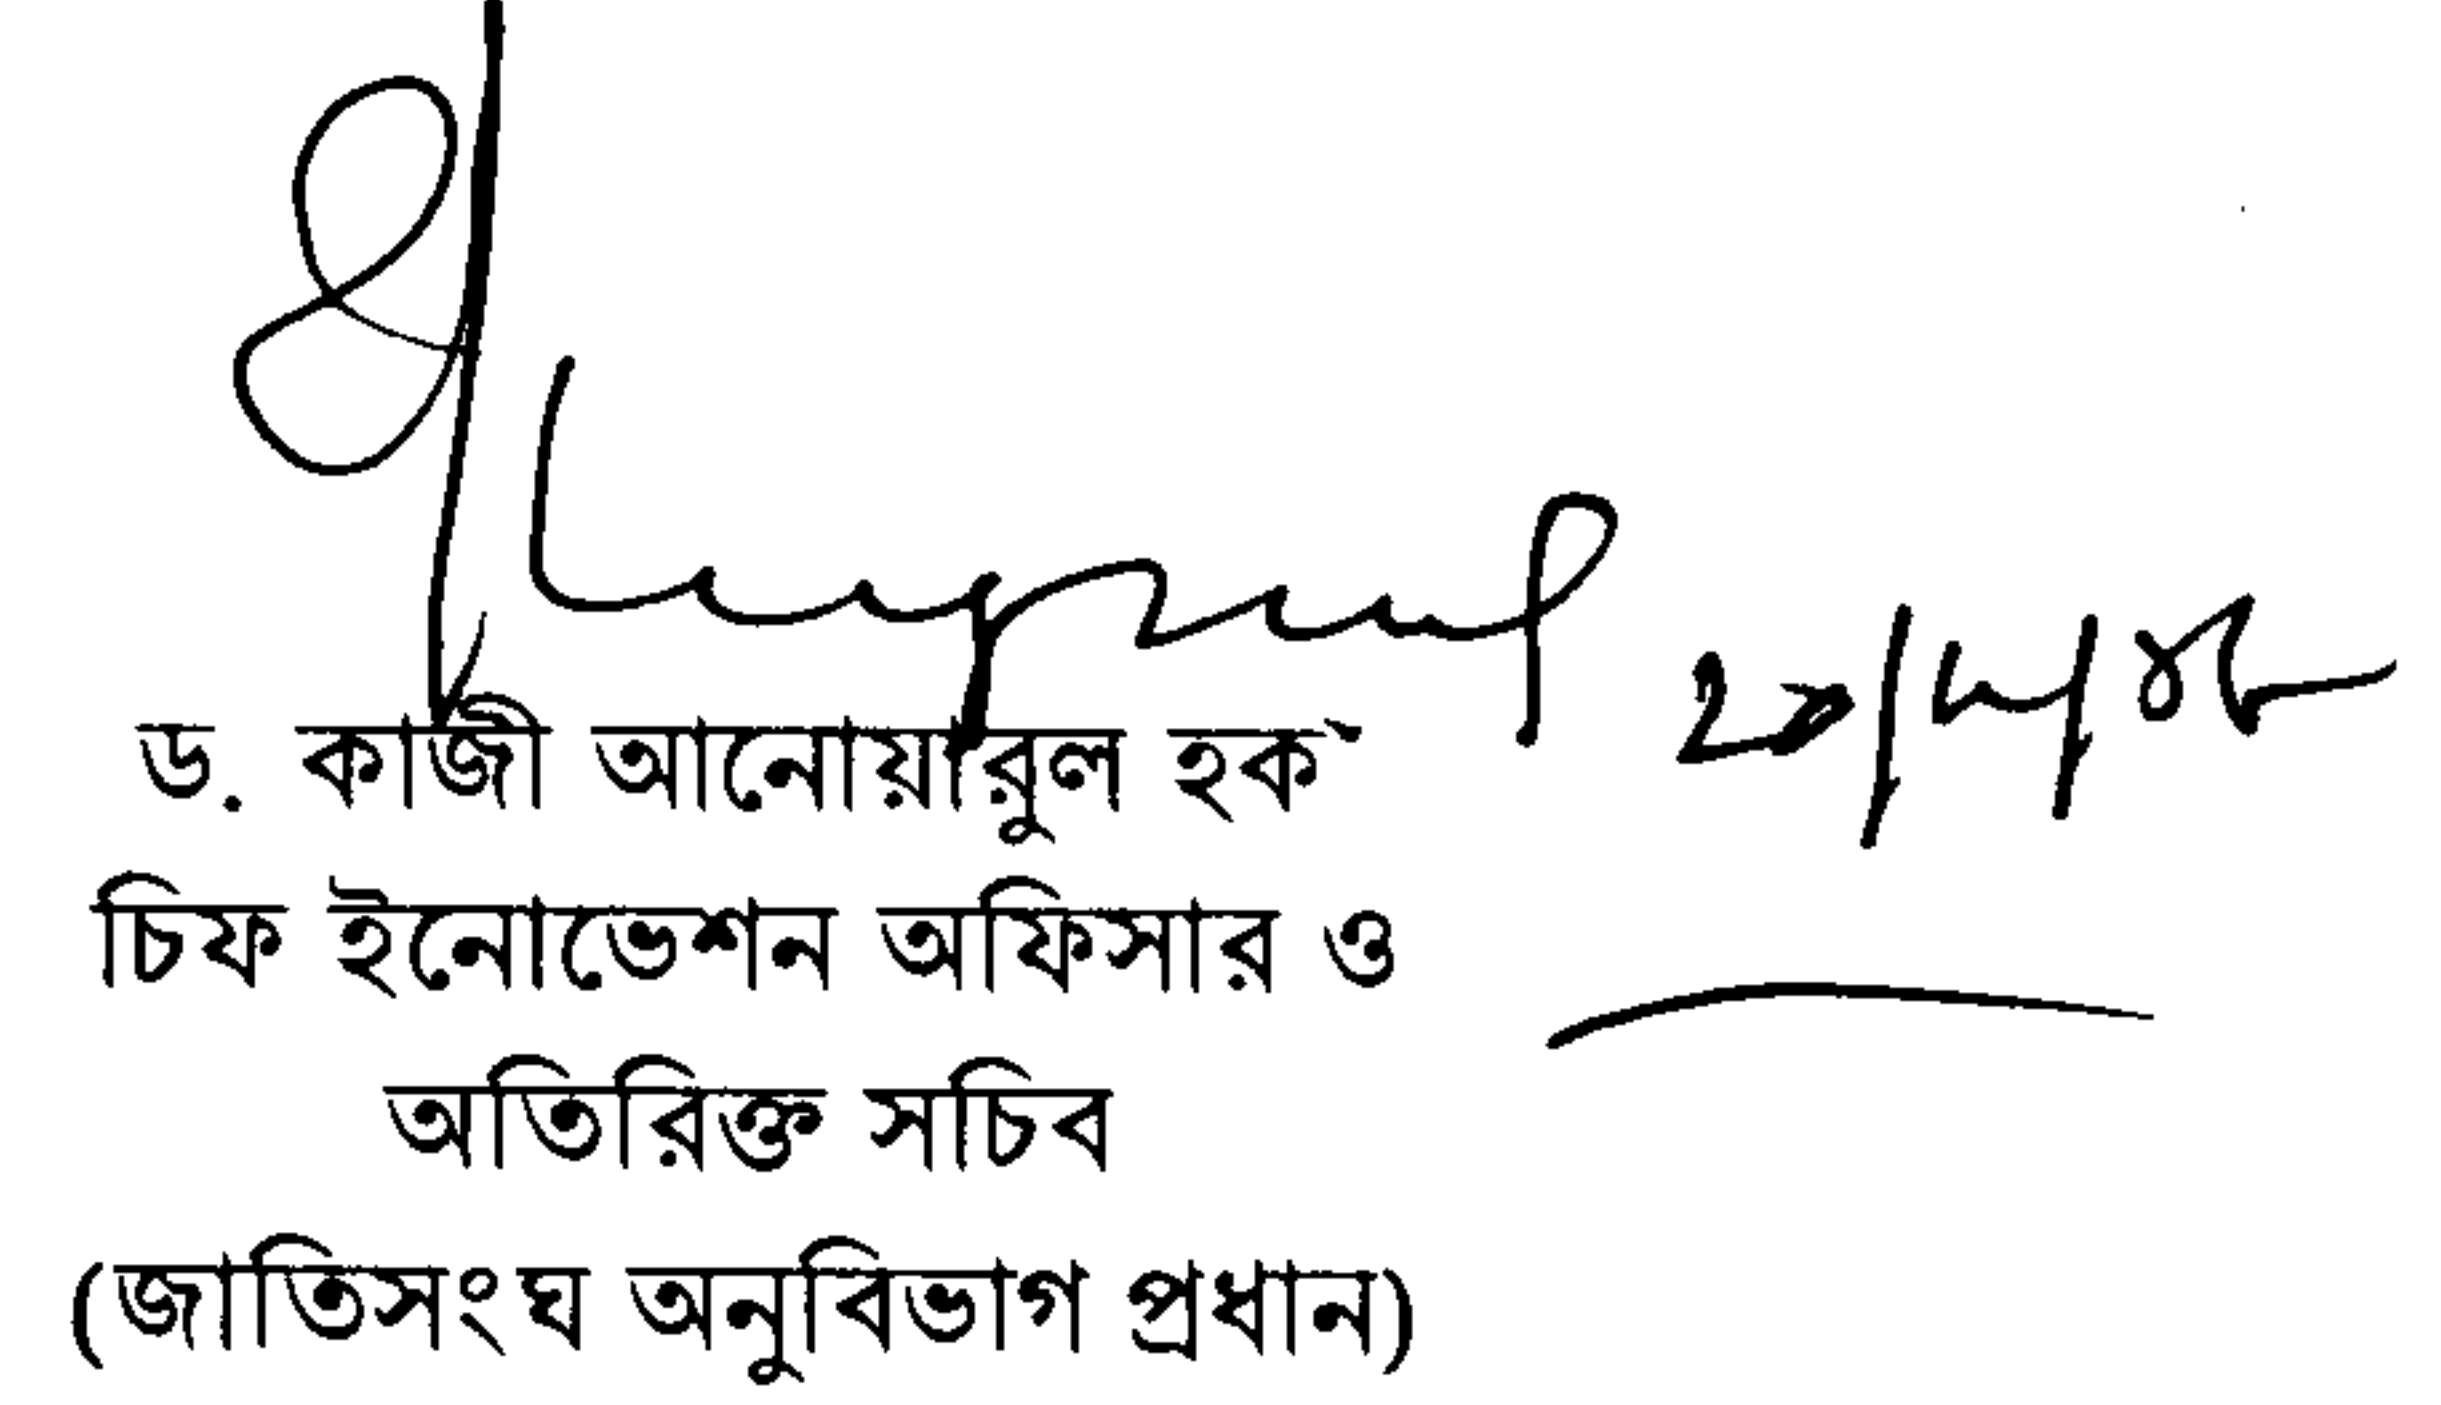 ড. কাজী আনোয়ারুল হক
চিফ ইনোভেশন অফিসার ও
অতিরিক্ত সচিব
(জাতিসংঘ অনুবিভাগ প্রধান)